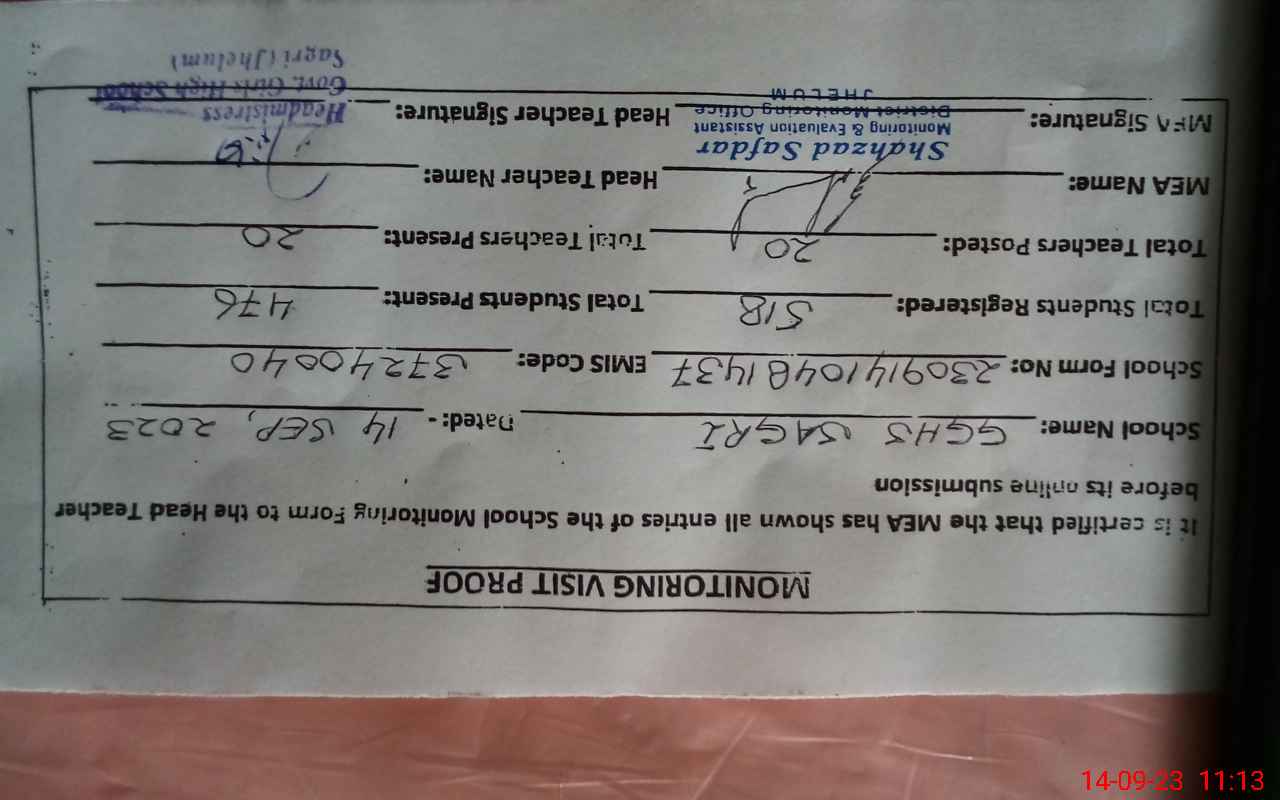 MONITORING VISIT PROOF
It is certified that the MEA has shown all entries of the School Monitoring Form to the Head Teacher
before its online submission
School Name: GGHS SAGRI Dated:- 14 SEP, 2023
School Form No: 2309141048 1437 EMIS Code: 37240040
Total Students Registered: 518 Total Students Present: 476
Total Teachers Posted: 20 Total Teachers Present: 20
MEA Name: Head Teacher Name:
Shahzad Safdar
Monitoring & Evaluation Assistant
District Monitoring Office
JHELUM
MEA Signature: Head Teacher Signature:
Headmistress
Govt. Girls High School
Sagri (Jhelum)
14-09-23 11:13